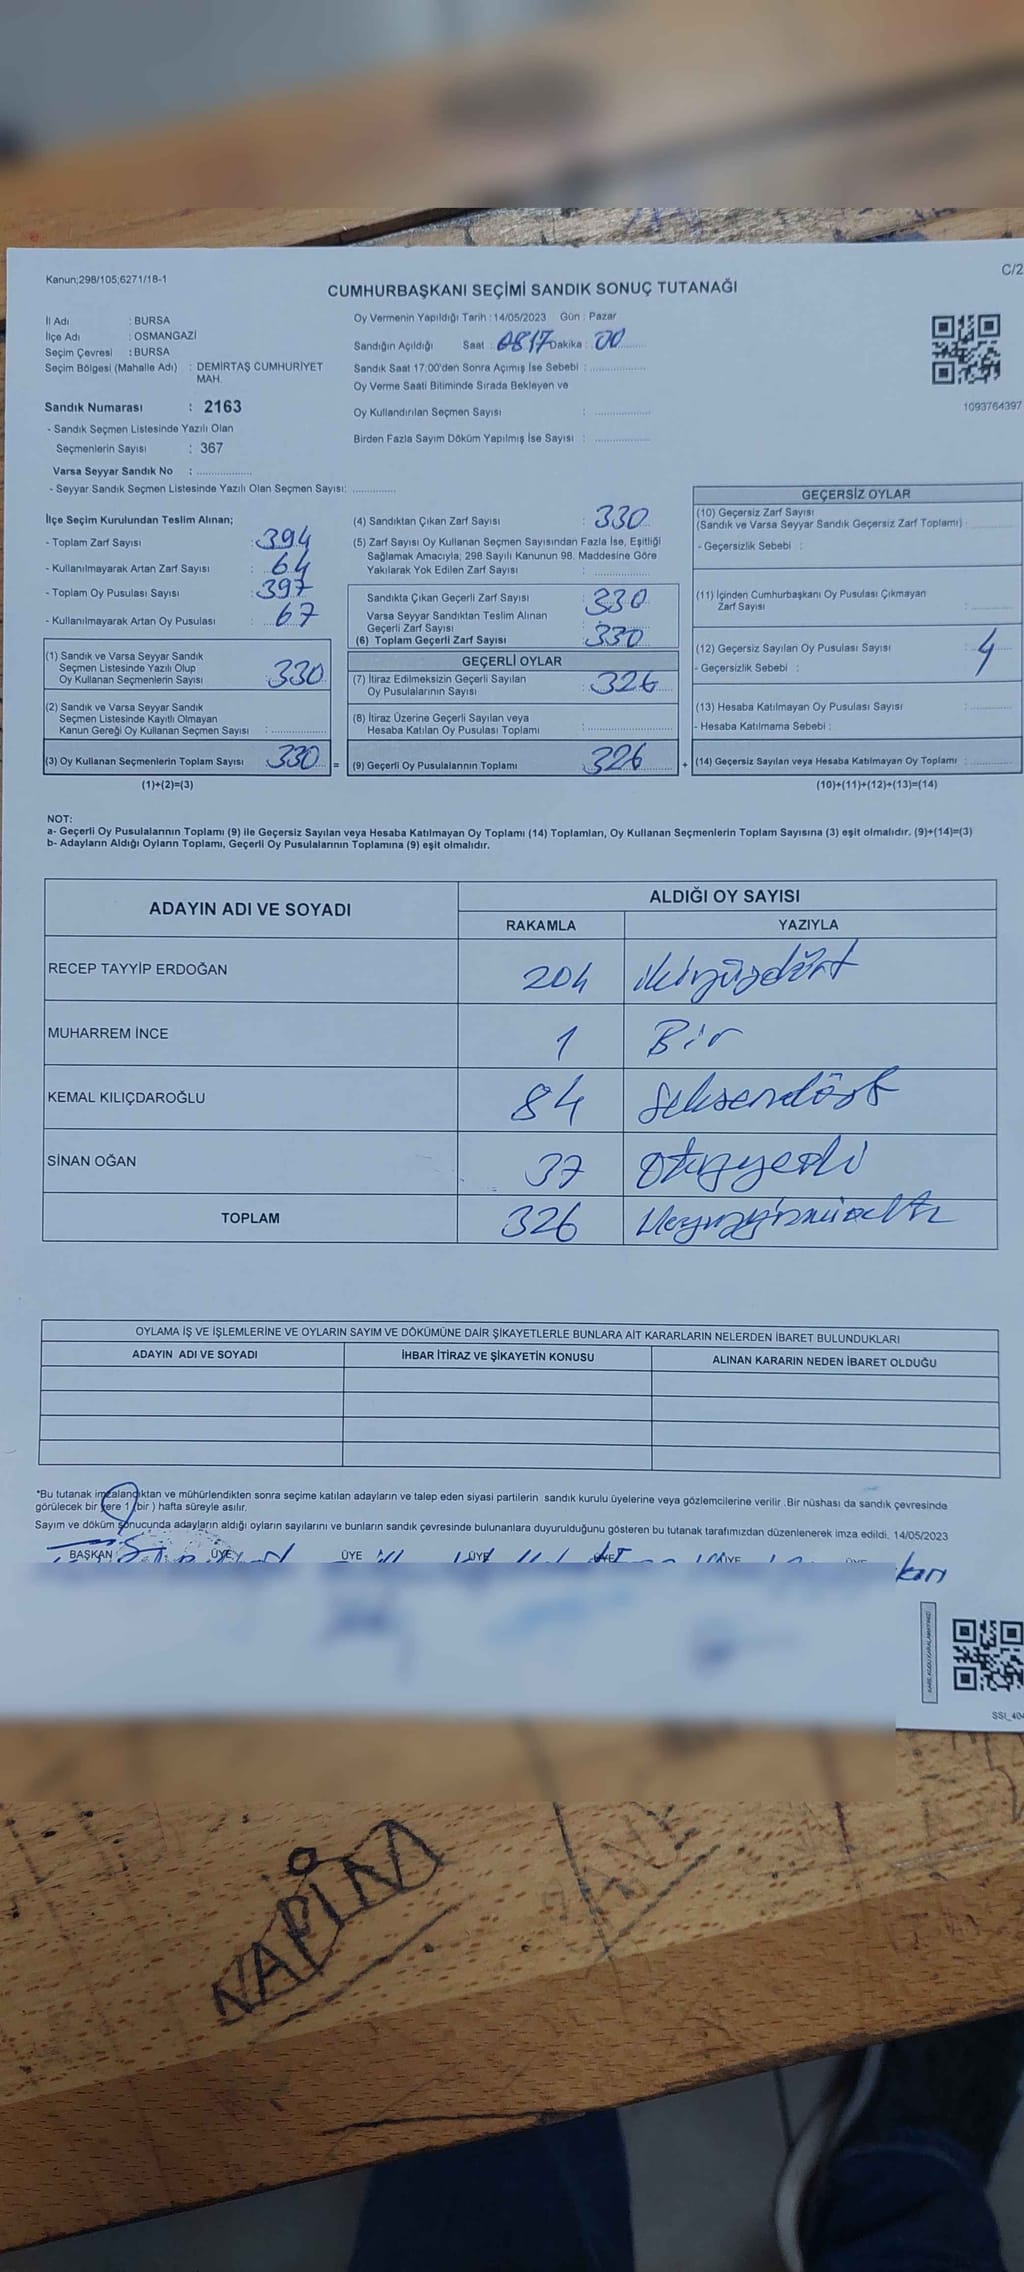 Kanun;298/105;6271/18-1
C/2
CUMHURBAŞKANI SEÇİMİ SANDIK SONUÇ TUTANAĞI
İl Adı : BURSA
İlçe Adı : OSMANGAZİ
Seçim Çevresi : BURSA
Seçim Bölgesi (Mahalle Adı) : DEMİRTAŞ CUMHURİYET
MAH.
Sandık Numarası : 2163
- Sandık Seçmen Listesinde Yazılı Olan
Seçmenlerin Sayısı : 367
Varsa Seyyar Sandık No : ..................
- Seyyar Sandık Seçmen Listesinde Yazılı Olan Seçmen Sayısı: .............
Oy Vermenin Yapıldığı Tarih : 14/05/2023 Gün : Pazar
Sandığın Açıldığı Saat : 0817 Dakika : 00
Sandık Saat 17.00'den Sonra Açımış İse Sebebi : ..................
Oy Verme Saati Bitiminde Sırada Bekleyen ve
Oy Kullandırılan Seçmen Sayısı : ..................
Birden Fazla Sayım Döküm Yapılmış İse Sayısı : ..................
1093764397
İlçe Seçim Kurulundan Teslim Alınan;
- Toplam Zarf Sayısı : 394
- Kullanılmayarak Artan Zarf Sayısı : 64
- Toplam Oy Pusulası Sayısı : 397
- Kullanılmayarak Artan Oy Pusulası : 67
(1) Sandık ve Varsa Seyyar Sandık
Seçmen Listesinde Yazılı Olup
Oy Kullanan Seçmenlerin Sayısı : 330
(2) Sandık ve Varsa Seyyar Sandık
Seçmen Listesinde Kayıtlı Olmayan
Kanun Gereği Oy Kullanan Seçmen Sayısı : ..................
(3) Oy Kullanan Seçmenlerin Toplam Sayısı 330 =
(1)+(2)=(3)
(4) Sandıktan Çıkan Zarf Sayısı : 330
(5) Zarf Sayısı Oy Kullanan Seçmen Sayısından Fazla İse, Eşitliği
Sağlamak Amacıyla; 298 Sayılı Kanunun 98. Maddesine Göre
Yakılarak Yok Edilen Zarf Sayısı : ..................
Sandıkta Çıkan Geçerli Zarf Sayısı : 330
Varsa Seyyar Sandıktan Teslim Alınan
Geçerli Zarf Sayısı : ..................
(6) Toplam Geçerli Zarf Sayısı : 330
GEÇERLİ OYLAR
(7) İtiraz Edilmeksizin Geçerli Sayılan
Oy Pusulalarının Sayısı : 326
(8) İtiraz Üzerine Geçerli Sayılan veya
Hesaba Katılan Oy Pusulası Toplamı : ..................
(9) Geçerli Oy Pusulalarının Toplamı : 326 +
GEÇERSİZ OYLAR
(10) Geçersiz Zarf Sayısı
(Sandık ve Varsa Seyyar Sandık Geçersiz Zarf Toplamı) : ..................
- Geçersizlik Sebebi :
(11) İçinden Cumhurbaşkanı Oy Pusulası Çıkmayan
Zarf Sayısı : ..................
(12) Geçersiz Sayılan Oy Pusulası Sayısı : 4
- Geçersizlik Sebebi :
(13) Hesaba Katılmayan Oy Pusulası Sayısı : ..................
- Hesaba Katılmama Sebebi :
(14) Geçersiz Sayılan veya Hesaba Katılmayan Oy Toplamı : ..................
(10)+(11)+(12)+(13)=(14)
NOT:
a- Geçerli Oy Pusulalarının Toplamı (9) ile Geçersiz Sayılan veya Hesaba Katılmayan Oy Toplamı (14) Toplamları, Oy Kullanan Seçmenlerin Toplam Sayısına (3) eşit olmalıdır. (9)+(14)=(3)
b- Adayların Aldığı Oyların Toplamı, Geçerli Oy Pusulalarının Toplamına (9) eşit olmalıdır.
ADAYIN ADI VE SOYADI ALDIĞI OY SAYISI
RAKAMLA YAZIYLA
RECEP TAYYİP ERDOĞAN 204 ikiyüzdört
MUHARREM İNCE 1 Bir
KEMAL KILIÇDAROĞLU 84 Seksendört
SİNAN OĞAN 37 Otuzyedi
TOPLAM 326 Üçyüzyirmialtı
OYLAMA İŞ VE İŞLEMLERİNE VE OYLARIN SAYIM VE DÖKÜMÜNE DAİR ŞİKAYETLERLE BUNLARA AİT KARARLARIN NELERDEN İBARET BULUNDUKLARI
ADAYIN ADI VE SOYADI İHBAR İTİRAZ VE ŞİKAYETİN KONUSU ALINAN KARARIN NEDEN İBARET OLDUĞU
*Bu tutanak imzalandıktan ve mühürlendikten sonra seçime katılan adayların ve talep eden siyasi partilerin sandık kurulu üyelerine veya gözlemcilerine verilir .Bir nüshası da sandık çevresinde
görülecek bir yere 1 (bir ) hafta süreyle asılır.
Sayım ve döküm sonucunda adayların aldığı oyların sayılarını ve bunların sandık çevresinde bulunanlara duyurulduğunu gösteren bu tutanak tarafımızdan düzenlenerek imza edildi. 14/05/2023
BAŞKAN ÜYE ÜYE ÜYE ÜYE ÜYE ÜYE
NAPİM